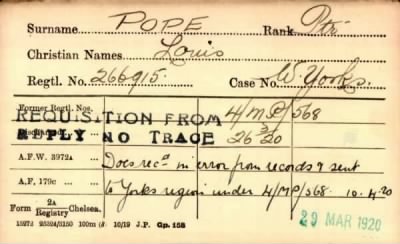 Surname POPE Rank Pte
Christian Names Louis
Regtl. No. 266915. Case No. W. Yorks.
Former Regtl. Nos.
REQUISITION FROM 4/MP/568
Discharged
REPLY NO TRACE 26/3/20
A.F.W. 3972A ... Docs recd in error from records & sent
A.F. 179c ... to Yorks region under 4/MP/568. 10.4.20
Form 2A/Registry Chelsea.
29 MAR 1920
(5272) 25324/3150 100m (8) 10/19 J.P. Gp. 158